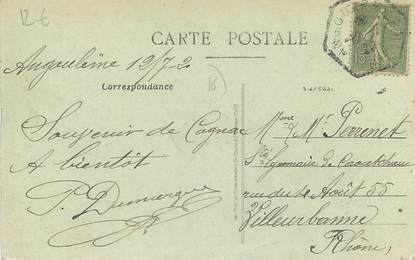 12-€
CARTE POSTALE
Angoulême 12/7-2
Correspondance
Souvenir de Cognac
A bientôt
Mme & Mr Perrenet
Sté Lyonnaise de Caoutchouc
rue du 4 Août 55
Villeurbanne
Rhône,